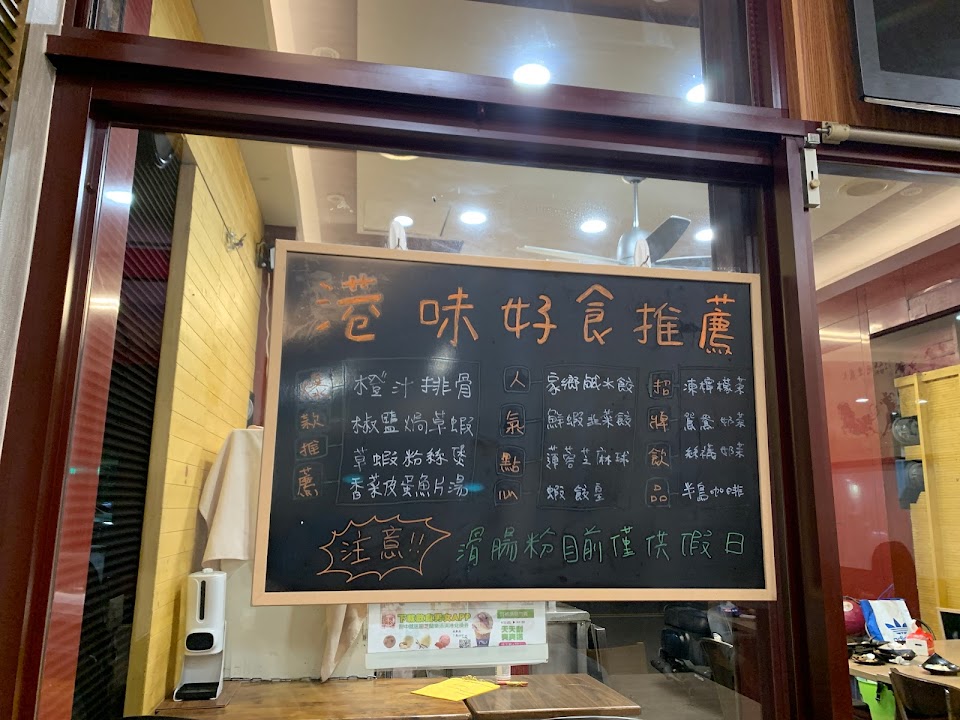 港味好食推薦
爆款推薦
橙汁排骨
椒鹽焗草蝦
草蝦粉絲煲
香菜皮蛋魚片湯
人氣點心
家鄉鹹水餃
鮮蝦韭菜餃
薄蓉芝麻球
蝦餃皇
招牌飲品
凍檸檬茶
鴛鴦奶茶
絲襪奶茶
半島咖啡
注意!!
滑腸粉目前僅供假日
天天創